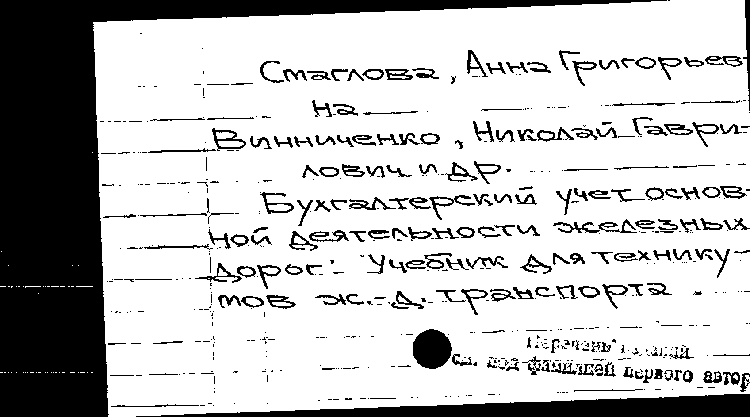 Стаглова, Анна Григорьев-
на
Винниченко, Николай Гаври-
лович и др.
Бухгалтерский учет основ-
ной деятельности железных
дорог: Учебник для технику-
мов ж.-д. транспорта.
Перечень изданий
см. под фамилией первого автор